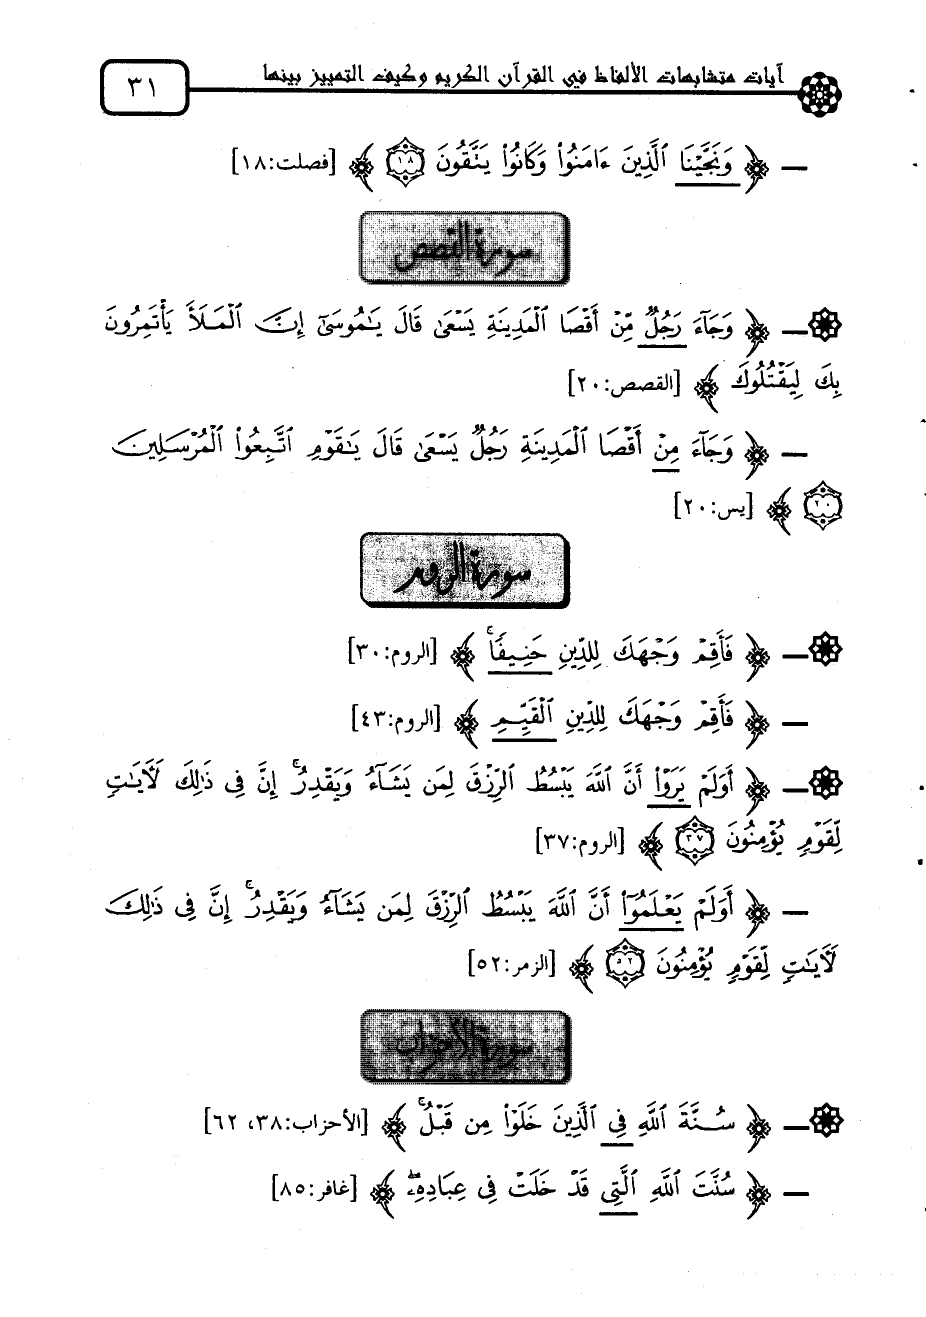 آيات متشابهات الألفاظ في القرآن الكريم وكيف التمييز بينها
٣١
— ﴿ وَنَجَّيْنَا ٱلَّذِينَ ءَامَنُوا۟ وَكَانُوا۟ يَتَّقُونَ ١٨ ﴾ [فصلت:١٨]
سورة القصص
— ﴿ وَجَآءَ رَجُلٌ مِّنْ أَقْصَا ٱلْمَدِينَةِ يَسْعَىٰ قَالَ يَـٰمُوسَىٰٓ إِنَّ ٱلْمَلَأَ يَأْتَمِرُونَ
بِكَ لِيَقْتُلُوكَ ﴾ [القصص:٢٠]
— ﴿ وَجَآءَ مِنْ أَقْصَا ٱلْمَدِينَةِ رَجُلٌ يَسْعَىٰ قَالَ يَـٰقَوْمِ ٱتَّبِعُوا۟ ٱلْمُرْسَلِينَ
٢٠ ﴾ [يس:٢٠]
سورة الروم
— ﴿ فَأَقِمْ وَجْهَكَ لِلدِّينِ حَنِيفًا ۚ ﴾ [الروم:٣٠]
— ﴿ فَأَقِمْ وَجْهَكَ لِلدِّينِ ٱلْقَيِّمِ ﴾ [الروم:٤٣]
— ﴿ أَوَلَمْ يَرَوْا۟ أَنَّ ٱللَّهَ يَبْسُطُ ٱلرِّزْقَ لِمَن يَشَآءُ وَيَقْدِرُ ۚ إِنَّ فِى ذَٰلِكَ لَـَٔايَـٰتٍ
لِّقَوْمٍ يُؤْمِنُونَ ٣٧ ﴾ [الروم:٣٧]
— ﴿ أَوَلَمْ يَعْلَمُوٓا۟ أَنَّ ٱللَّهَ يَبْسُطُ ٱلرِّزْقَ لِمَن يَشَآءُ وَيَقْدِرُ ۚ إِنَّ فِى ذَٰلِكَ
لَـَٔايَـٰتٍ لِّقَوْمٍ يُؤْمِنُونَ ٥٢ ﴾ [الزمر:٥٢]
سورة الأحزاب
— ﴿ سُنَّةَ ٱللَّهِ فِى ٱلَّذِينَ خَلَوْا۟ مِن قَبْلُ ۚ ﴾ [الأحزاب:٣٨، ٦٢]
— ﴿ سُنَّتَ ٱللَّهِ ٱلَّتِى قَدْ خَلَتْ فِى عِبَادِهِۦ ۖ ﴾ [غافر:٨٥]